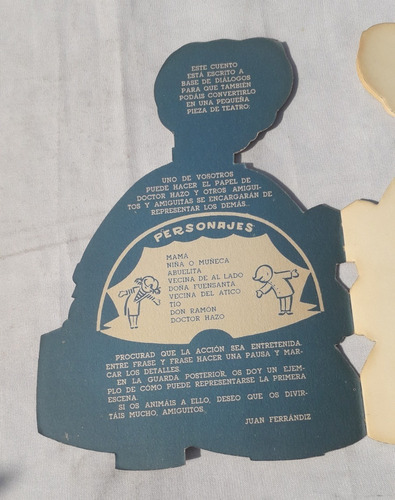 ESTE CUENTO
ESTÁ ESCRITO A
BASE DE DIÁLOGOS
PARA QUE TAMBIÉN
PODÁIS CONVERTIRLO
EN UNA PEQUEÑA
PIEZA DE TEATRO:
UNO DE VOSOTROS
PUEDE HACER EL PAPEL DE
DOCTOR HAZO Y OTROS AMIGUI-
TOS Y AMIGUITAS SE ENCARGARÁN DE
REPRESENTAR LOS DEMÁS.
PERSONAJES
MAMÁ
NIÑA O MUÑECA
ABUELITA
VECINA DE AL LADO
DOÑA FUENSANTA
VECINA DEL ÁTICO
TÍO
DON RAMÓN
DOCTOR HAZO
PROCURAD QUE LA ACCIÓN SEA ENTRETENIDA.
ENTRE FRASE Y FRASE HACER UNA PAUSA Y MAR-
CAR LOS DETALLES.
EN LA GUARDA POSTERIOR, OS DOY UN EJEM-
PLO DE CÓMO PUEDE REPRESENTARSE LA PRIMERA
ESCENA.
SI OS ANIMÁIS A ELLO, DESEO QUE OS DIVIR-
TÁIS MUCHO, AMIGUITOS.
JUAN FERRÁNDIZ